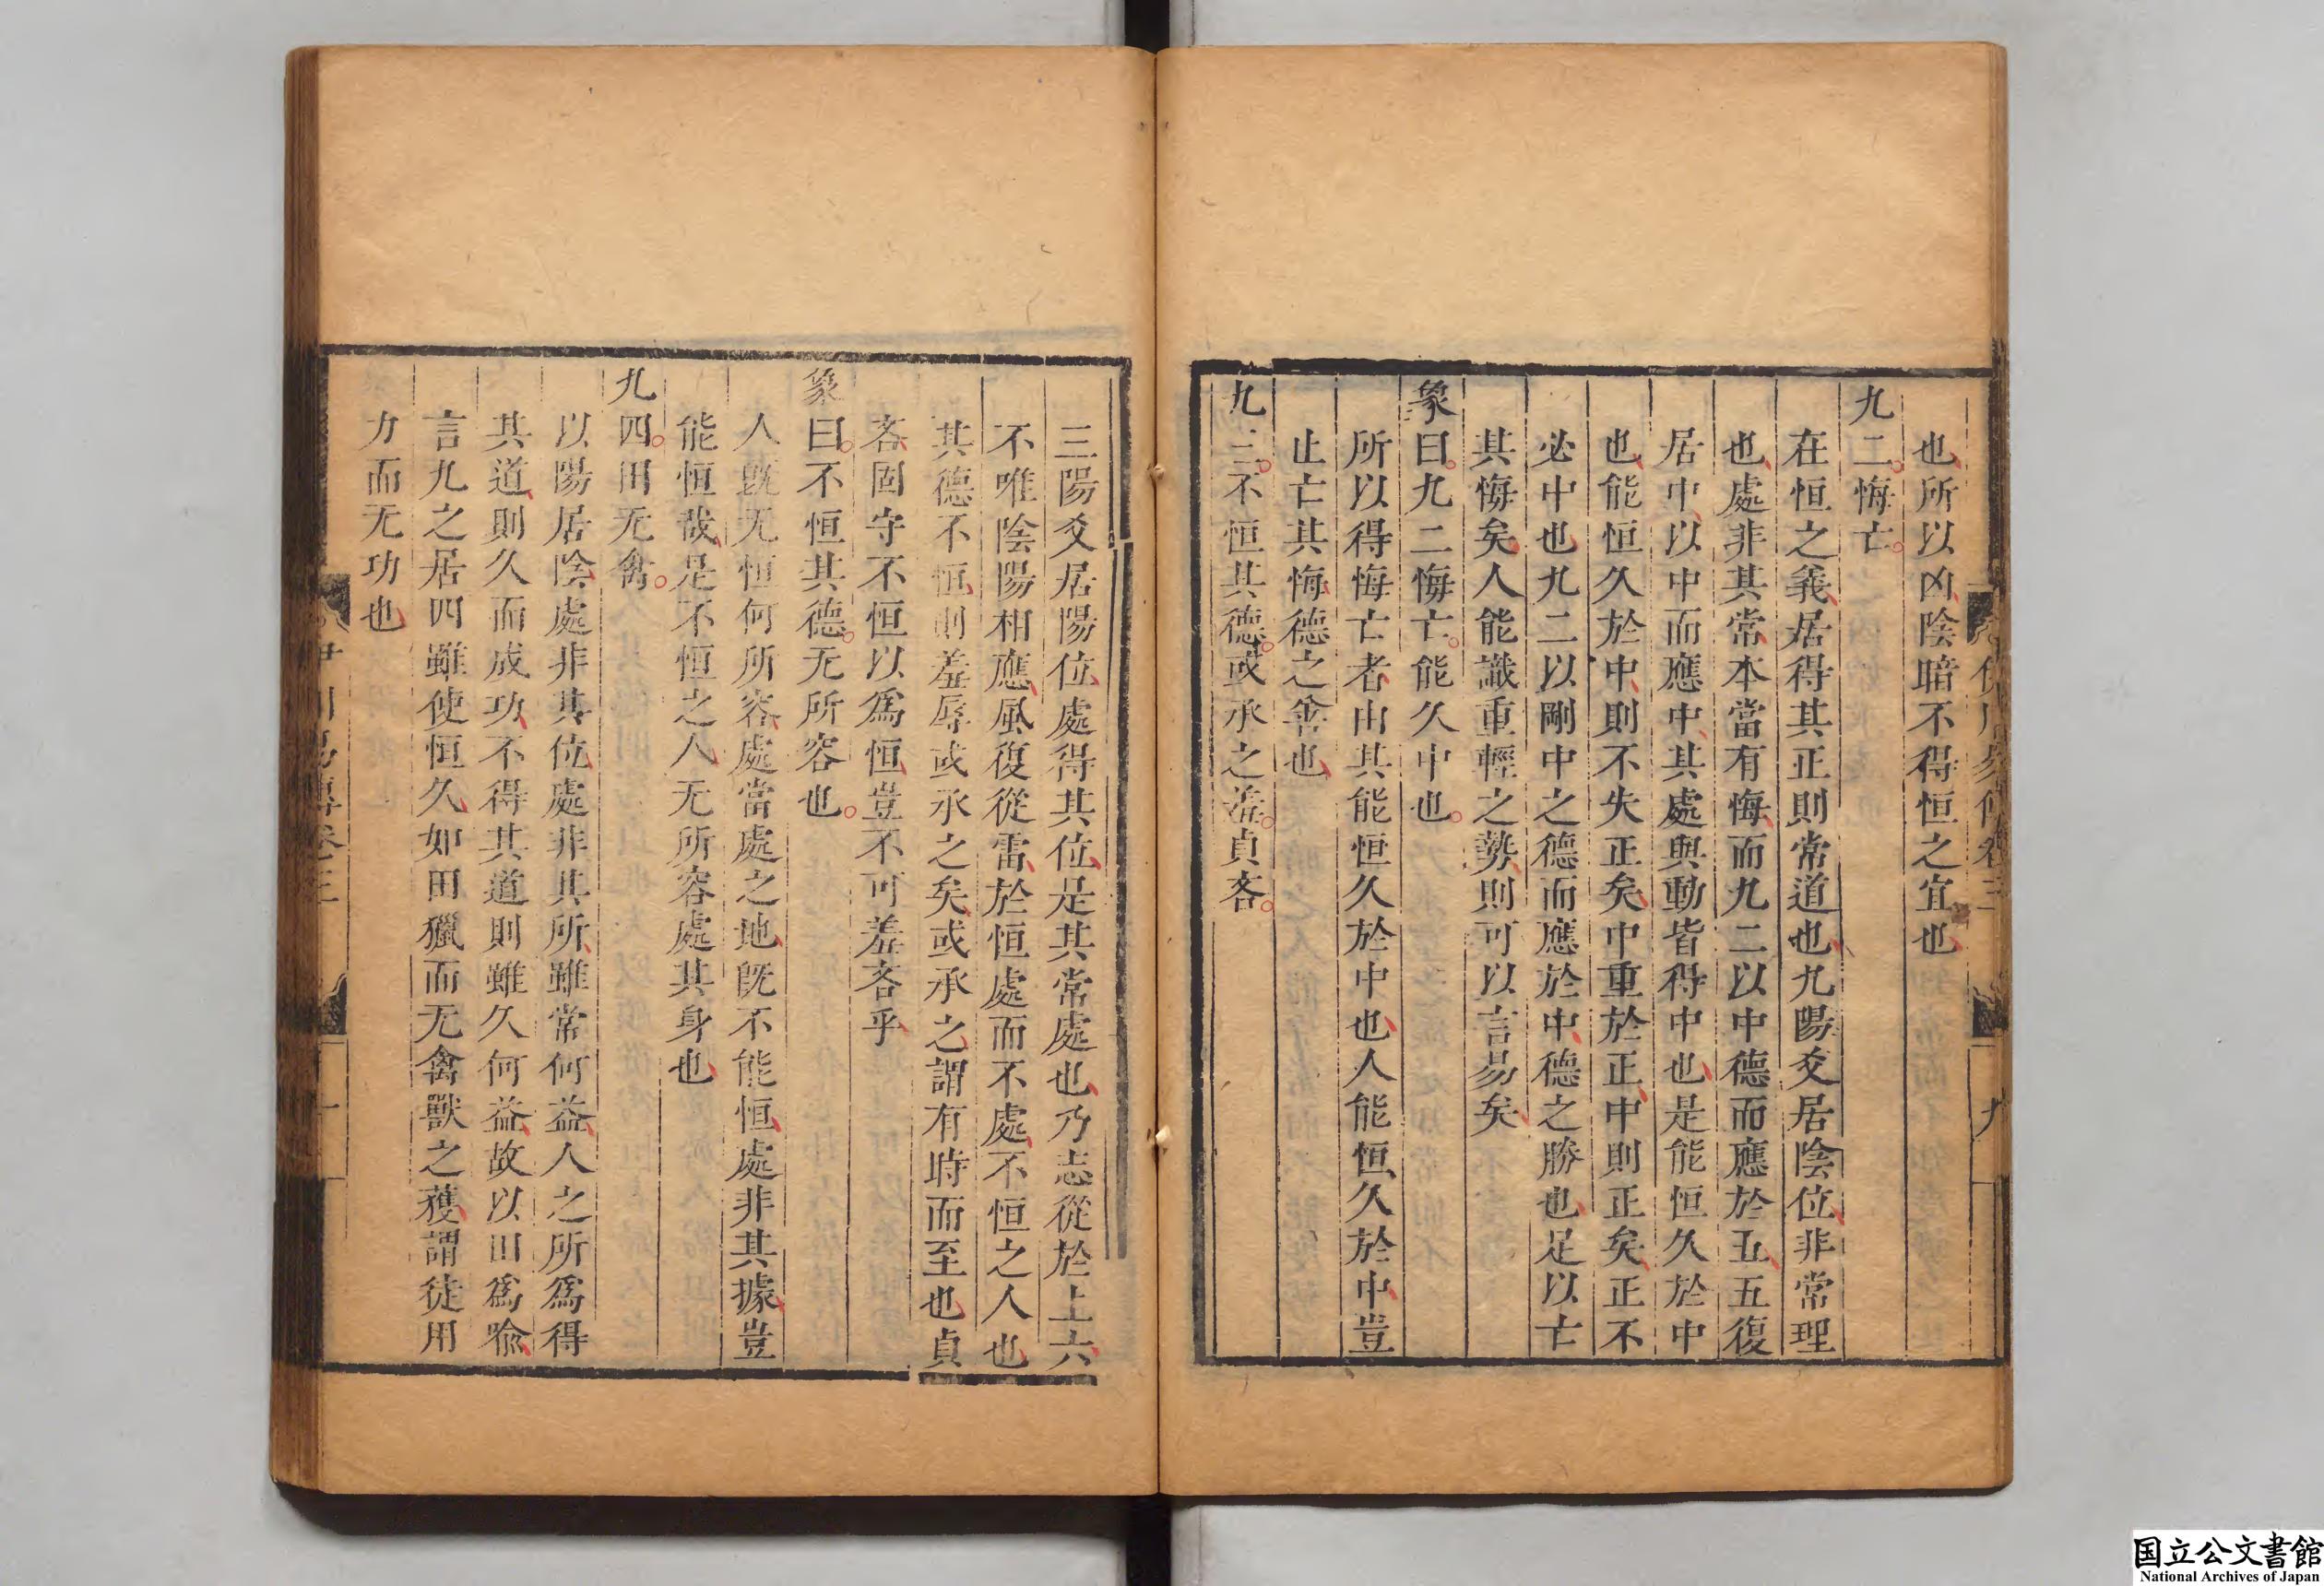 也所以凶陰暗不得恒之宜也
九二悔亡
在恒之義居得其正則常道也九陽爻居陰位非常理
也處非其常本當有悔而九二以中德而應於五五復
居中以中而應中其處與動皆得中也是能恒久於中
也能恒久於中則不失正矣中重於正中則正矣正不
必中也九二以剛中之德而應於中德之勝也足以亡
其悔矣人能識重輕之勢則可以言易矣
象曰九二悔亡能久中也
所以得悔亡者由其能恒久於中也人能恒久於中豈
止亡其悔德之善也
九三不恒其德或承之羞貞吝
三陽爻居陽位處得其位是其常處也乃志從於上六
不唯陰陽相應風復從雷於恒處而不處不恒之人也
其德不恒則羞辱或承之矣或承之謂有時而至也貞
吝固守不恒以爲恒豈不可羞吝乎
象曰不恒其德无所容也
人既无恒何所容處當處之地既不能恒處非其據豈
能恒哉是不恒之人无所容處其身也
九四田无禽
以陽居陰處非其位處非其所雖常何益人之所爲得
其道則久而成功不得其道則雖久何益故以田爲喩
言九之居四雖使恒久如田獵而无禽獸之獲謂徒用
力而无功也
伊川易傳卷三
九
国立公文書館
National Archives of Japan